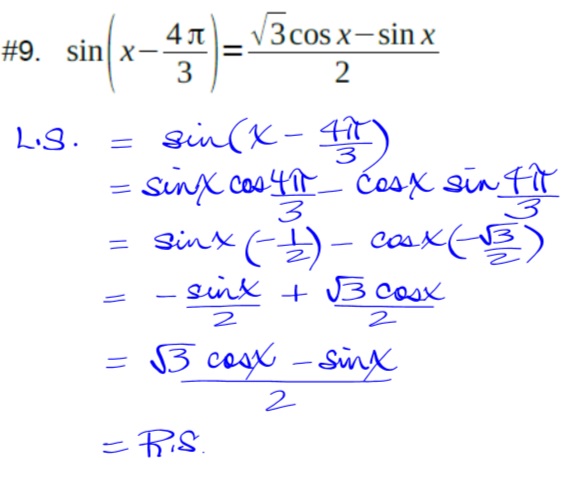 #9. sin(x − 4π/3) = (√3 cos x − sin x)/2
L.S. = sin(x − 4π/3)
= sinx cos 4π/3 − cosx sin 4π/3
= sinx (−1/2) − cosx (−√3/2)
= − sinx/2 + √3 cosx/2
= (√3 cosx − sinx)/2
= R.S.